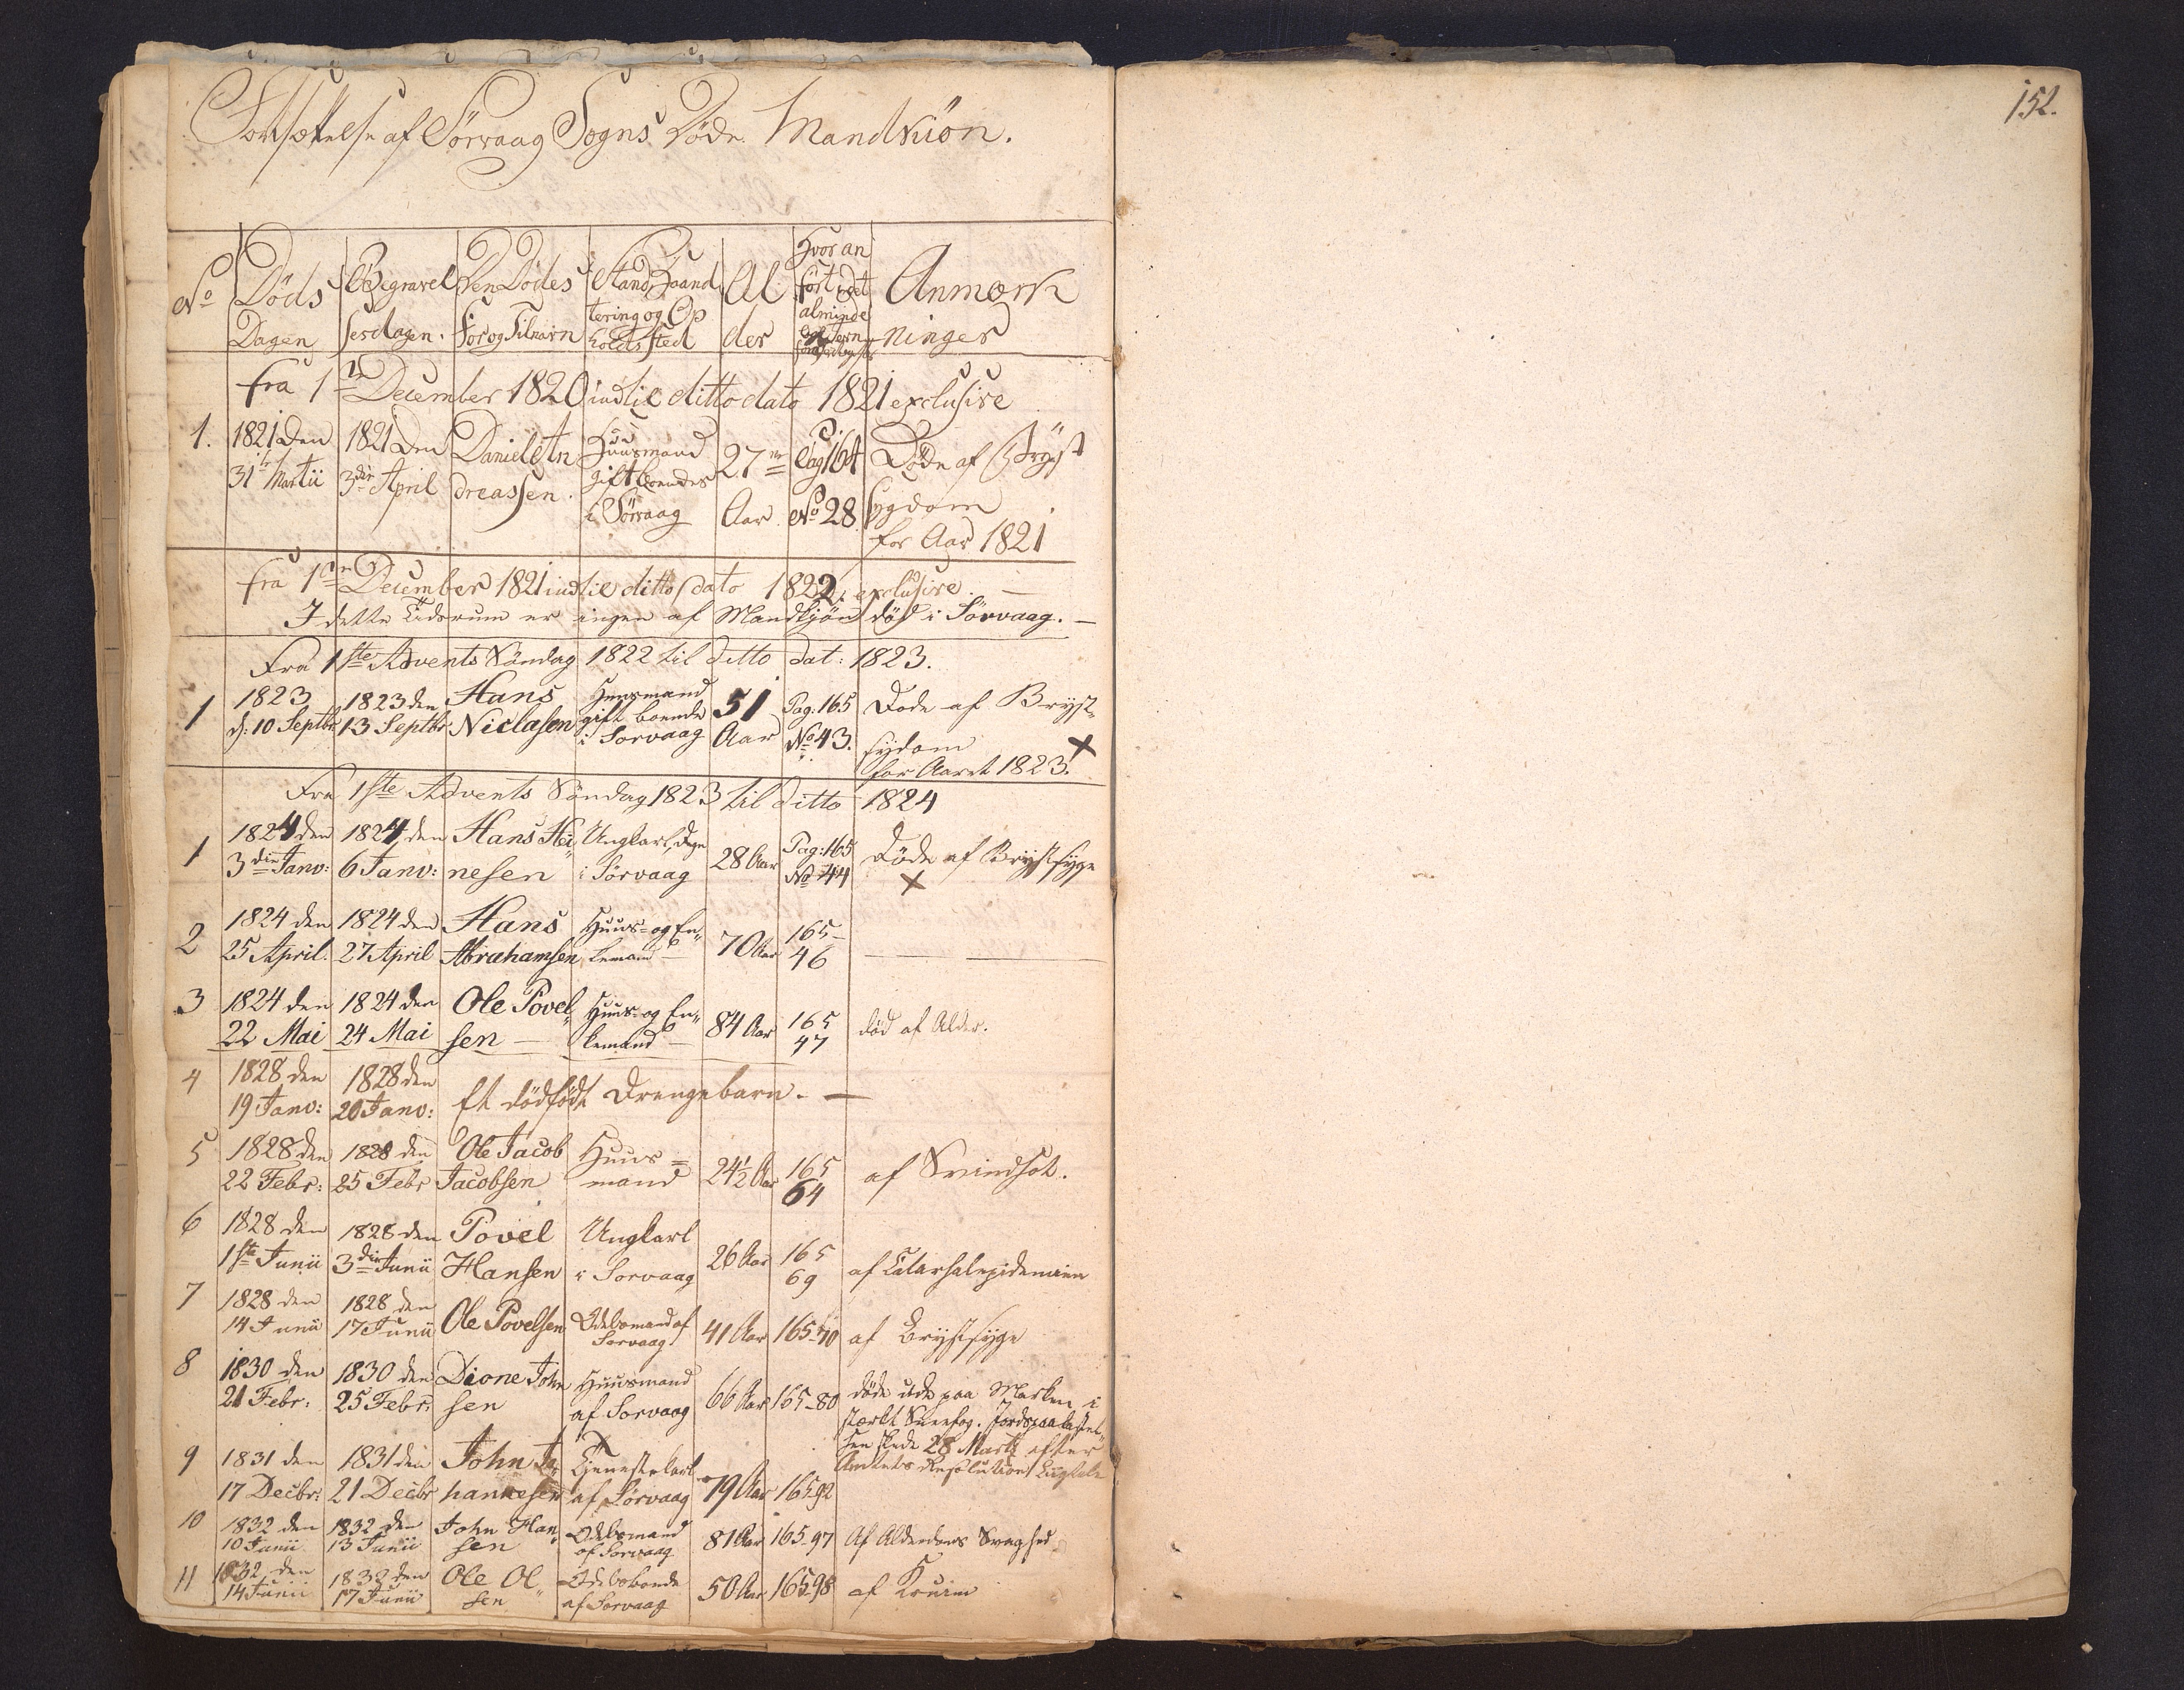 Fortsættelse af Sörvaag Sogns Döde Mandkiön.
152.
No Döds Dagen Begravel sesdagen. Den Dödes For og Tilnavn Stand Haand tering og Op holds sted Al der Hvor an fört i det alminde Anmærk ninger
fra 1ste December 1820 indtil ditto dato 1821 exclusive
1. 1821 den 1821 den Daniel An Huusmand 27 Pag 164 Döde af Bryst
31te Martii 3die April dreassen. gift boendes Aar No 28 sygdom
i Sörvaag for Aar 1821
fra 1ste December 1821 indtil ditto dato 1822 exclusive. —
I dette Tidsrum er ingen af Mandkjön död i Sörvaag. —
Fra 1ste Advents Söndag 1822 til ditto dat: 1823.
1 1823 1823 den Hans Huusmand 51 Pag: 165 Döde af Bryst
d: 10 Septbr 13 Septbr Niclasen gift boende Aar No 43. sydom
i Sorvaag for Aaret 1823.
Fra 1ste Advents Söndag 1823 til ditto 1824
1 1824 den 1824 den Hans Hei Ungkarl, 28 Aar Pag: 165 Döde af Brystsyge
3die Janv: 6 Janv: nesen i Sörvaag No 44
2 1824 den 1824 den Hans Huus- og En 70 Aar 165-
25 April. 27 April Abrahamsen kemand 46
3 1824 den 1824 den Ole Povel Huus- og En 84 Aar 165 död af Alder.
22 Mai 24 Mai sen — kemand — 47
4 1828 den 1828 den Et dödfödt Drengebarn. —
19 Janv: 20 Janv:
5 1828 den 1828 den Ole Jacob Huus= 24½ Aar 165 af Svindsot.
22 Febr: 25 Febr Jacobsen mand 64
6 1828 den 1828 den Povel Ungkarl 26 Aar 165 af Catarhalepidemien
1ste Junii 3die Junii Hansen i Sorvaag 69
7 1828 den 1828 den Ole Povelsen Odelsmand af 41 Aar 165-70 af Brystsyge
14 Junii 17 Junii Sorvaag
8 1830 den 1830 den Dione John Huusmand 66 Aar 165-80 döde ude paa Marken i
21 Febr: 25 Febr: sen af Sorvaag stærkt Sneefog. Jordspaakastel
sen skede 28 Marts efter
Amtets Resolution
9 1831 den 1831 den John Jo Tjenestekarl 79 Aar 165.92
17 Decbr: 21 Decbr hannesen af Sörvaag
10 1832 den 1832 den John Han Odelsmand 81 Aar 165-97 Af Alderdoms Svaghed
10 Junii 13 Junii sen af Sorvaag
11 1832 den 1832 den Ole Ol Odelsbonde 50 Aar 165.98 af Kruim
14 Junii 17 Junii sen af Sorvaag